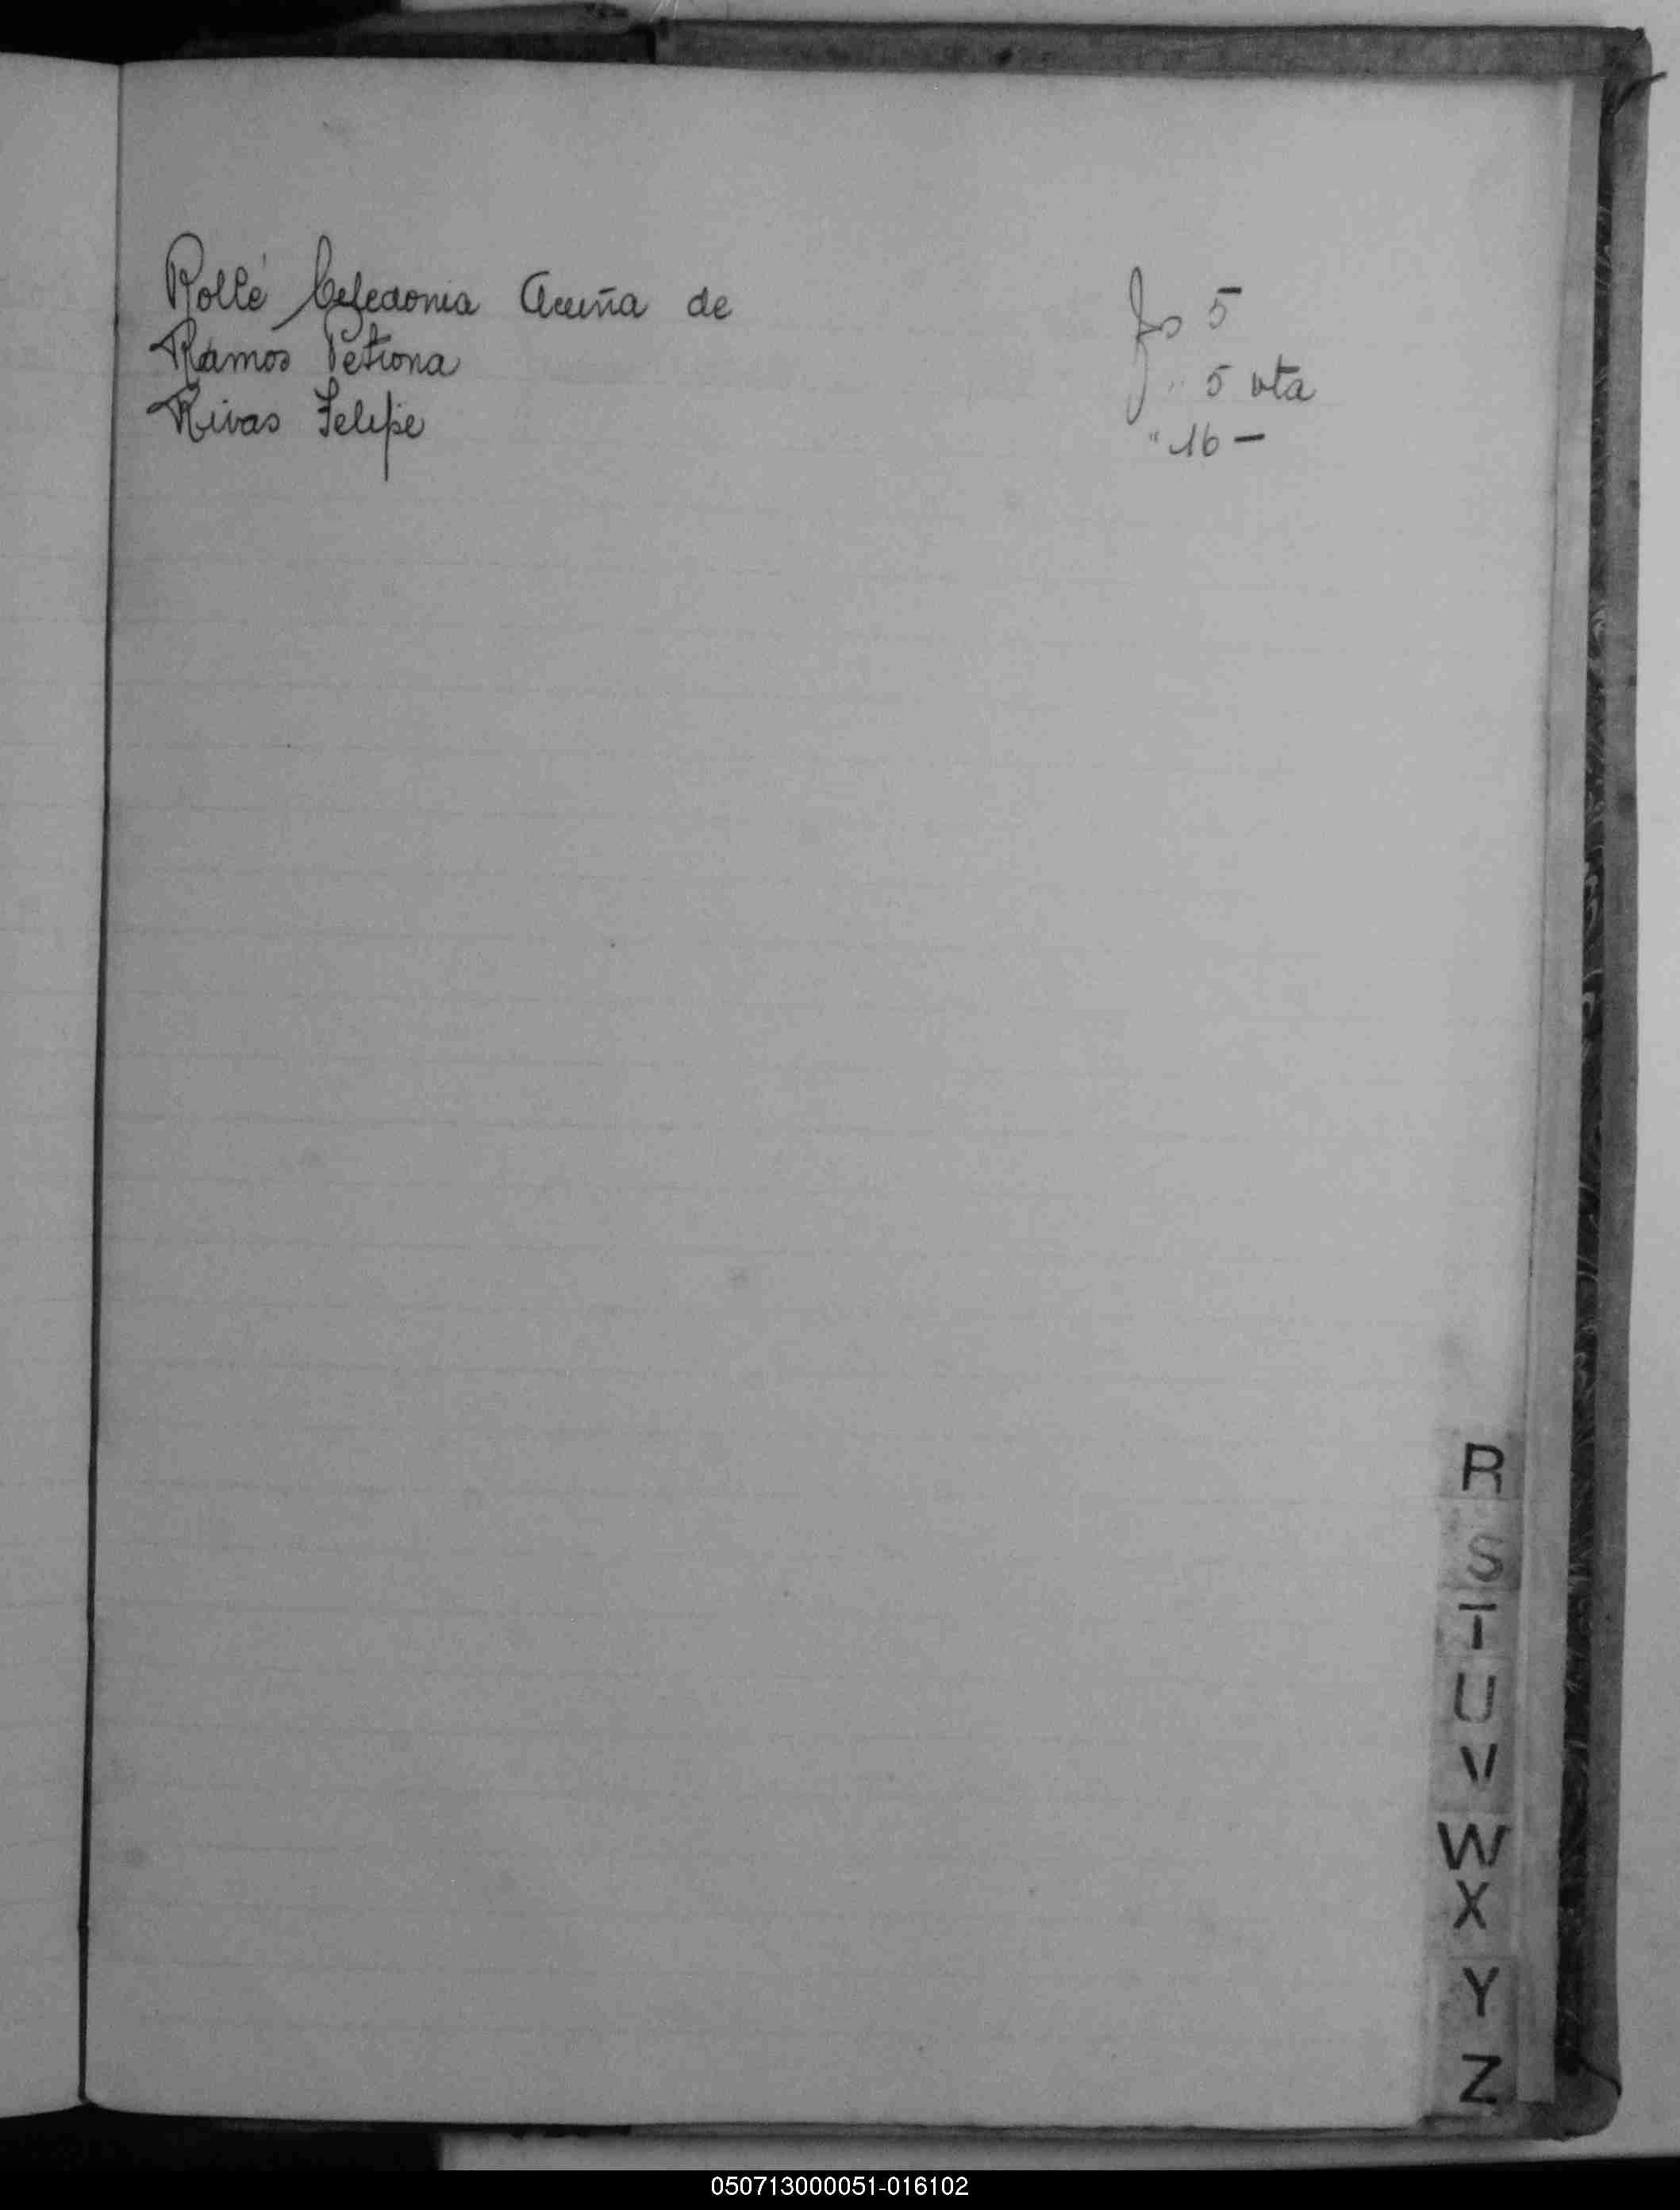 Rollé Cefedonia Acuña de fo 5
Ramos Petrona " 5 vta
Rivas Felipe " 16 —
R
S
T
U
V
W
X
Y
Z
050713000051-016102